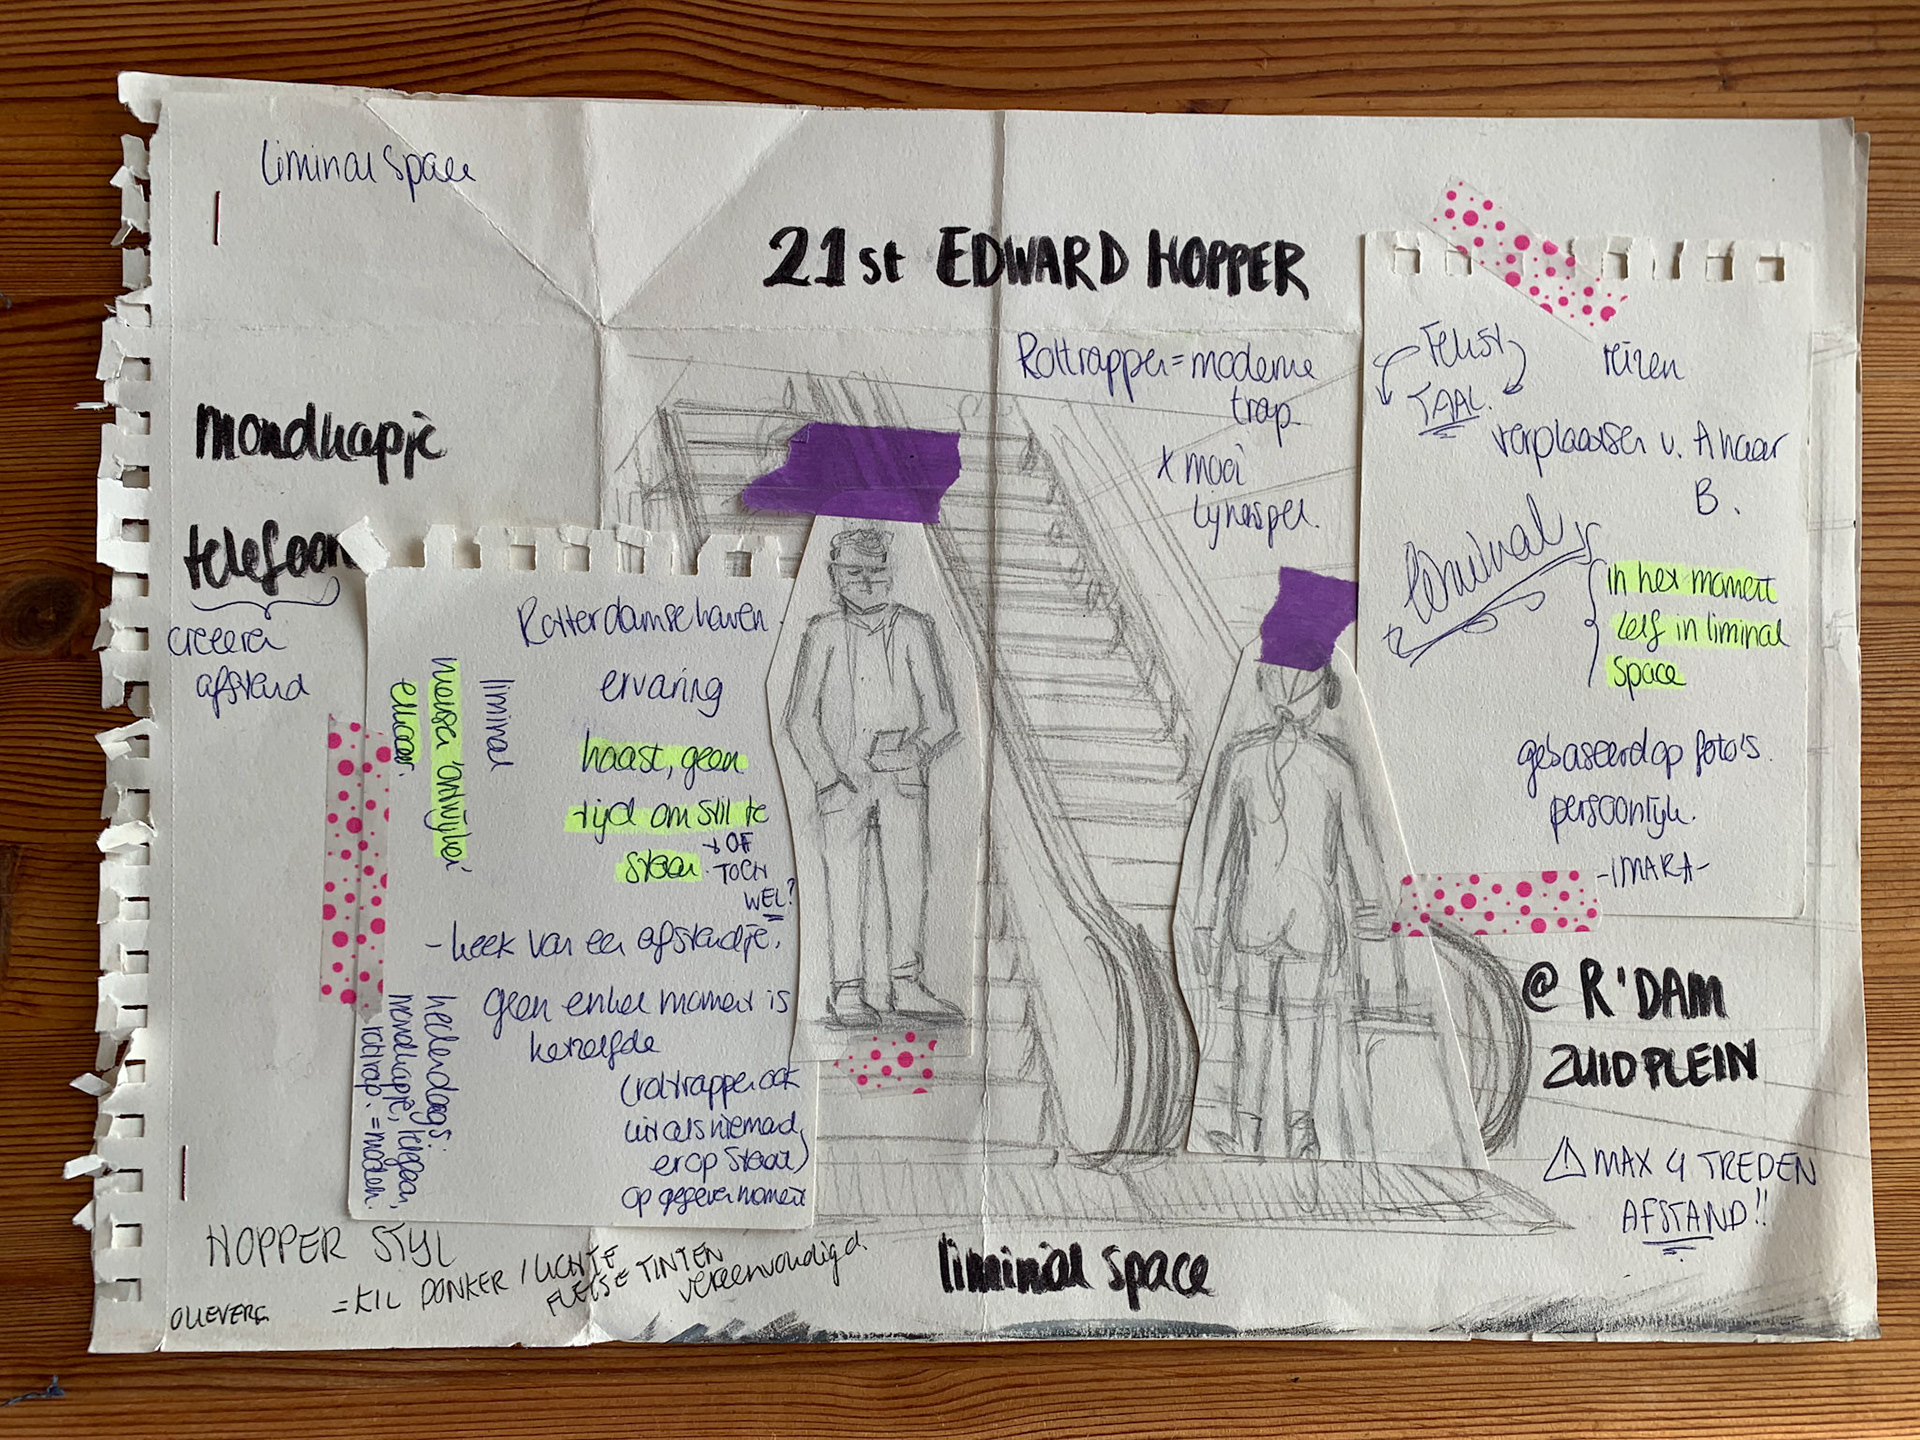 liminal space
21st EDWARD HOPPER
mondkapje
telefoon
creëren
afstand
Roltrappen = moderne
trap
+ mooi
lijnenspel.
Rotterdamse haven
ervaring
liminal
mensen ontwijken
elkaar.
haast, geen
tijd om stil te
staan.
→ OF
TOCH
WEL?
- keek van een afstandje.
geen enkel moment is
hetzelfde
(roltrappen ook
uit als niemand
erop staat)
op gegeven moment
hedendaags:
mondkapje,
roltrap. = modern.
TEKST
TAAL.
reizen
verplaatsen v. A naar
B.
liminal
in het moment
zelf in liminal
space
gebaseerd op foto's.
persoonlijk.
-IMARA-
@ R'DAM
ZUIDPLEIN
⚠ MAX 4 TREDEN
AFSTAND!!
HOPPER STIJL
= KIL DONKER / LICHTE
FLETSE TINTEN
vereenvoudigd.
liminal space